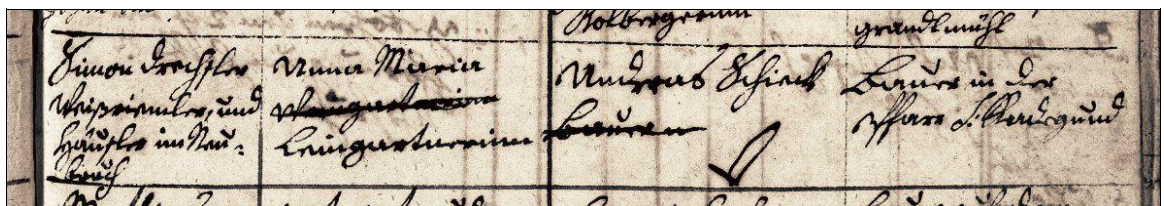 Kolbergerinn
grandlmühl
Simon Drechsler
Weißriemler, und
Häusler im Neu-
bruch
Anna Maria
Leingartnerinn
Andreas Schieck
Bauern
Bauer in der
Pfarr S. Radegund